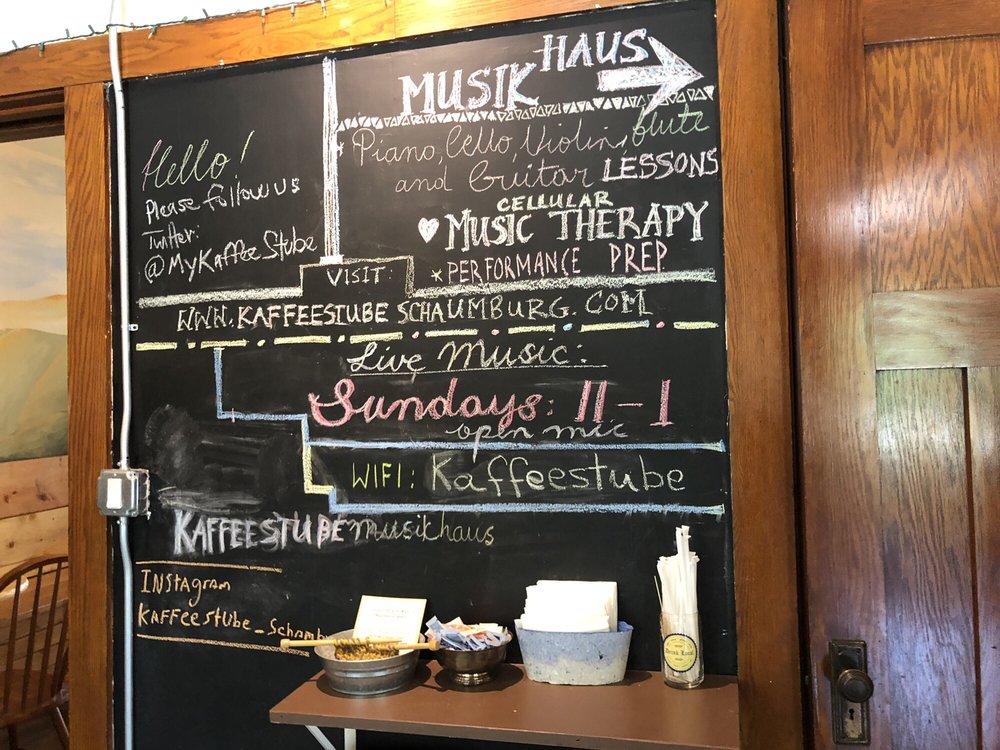 MUSIK HAUS
Piano, Cello, Violin, flute
and Guitar LESSONS
CELLULAR
MUSIC THERAPY
*PERFORMANCE PREP
Hello!
Please follow us
Twitter:
@MyKaffeeStube
VISIT:
WWW.KAFFEESTUBESCHAUMBURG.COM
Live Music:
Sundays: 11-1
open mic
WIFI: Kaffeestube
KAFFEESTUBE musikhaus
INstagram
Kaffeestube_Schamb
Drink Local